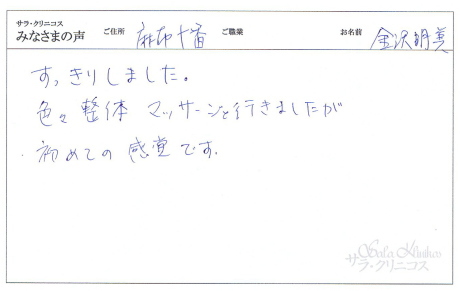 サラ・クリニコス
みなさまの声 ご住所 麻布十番 ご職業 お名前 金沢明美
すっきりしました。
色々整体 マッサージと行きましたが
初めての感覚です.
Sala Klinikos
サラ・クリニコス